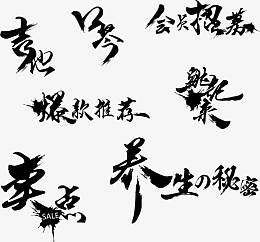 吉他
口琴
会员招募
爆款推荐
跳起来
卖点
SALE
养生の秘密